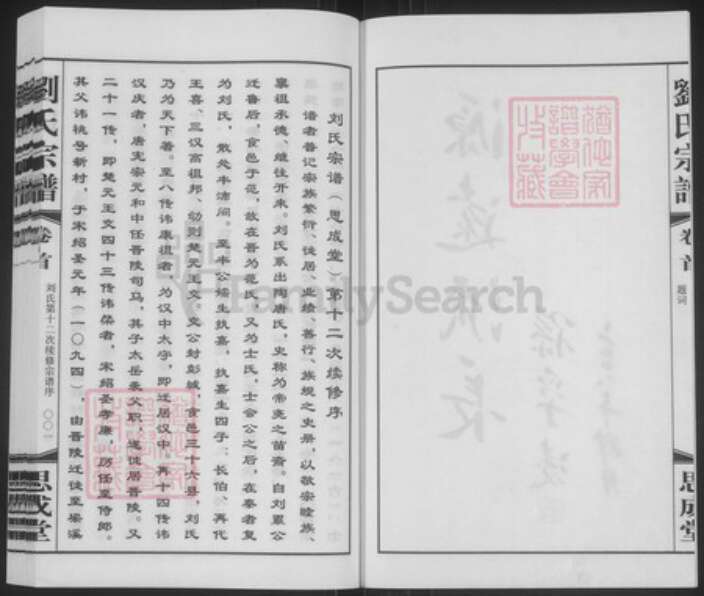 劉氏宗譜
卷首
题词
思成堂
譜學會
收藏
源遠流長
刘氏宗谱（思成堂）第十二次续修序
谱者普记宗族繁衍、徙居、业绩、善行、族规之史册，以敬宗睦族、
禀祖承德、继往开来。刘氏系出陶唐氏，史称为帝尧之苗裔。自刘累公
迁鲁后，食邑于范，故在晋为范氏，又为士氏，士会公之后，在秦者复
为刘氏，散处丰沛间。至丰公端生执嘉，执嘉生四子，长伯、再代
王喜、三汉高祖邦、幼则楚元王交。交公封彭城，食邑三十六县，刘氏
乃为天下著。至八传讳康祖者，为汉中太守，即迁居汉中。再十四传讳
汉庆者，唐宪宗元和中任晋陵司马，其子太岳袭父职，遂徙居晋陵。又
二十一传，即楚元王交四十三传讳荣者，宋绍圣孝廉，历任至侍郎。
其父讳桃号新村，于宋绍圣元年（一〇九四），由晋陵迁徙至梁溪
劉氏宗譜
卷首
刘氏第十二次续修宗谱序
〇〇一
思成堂
FamilySearch